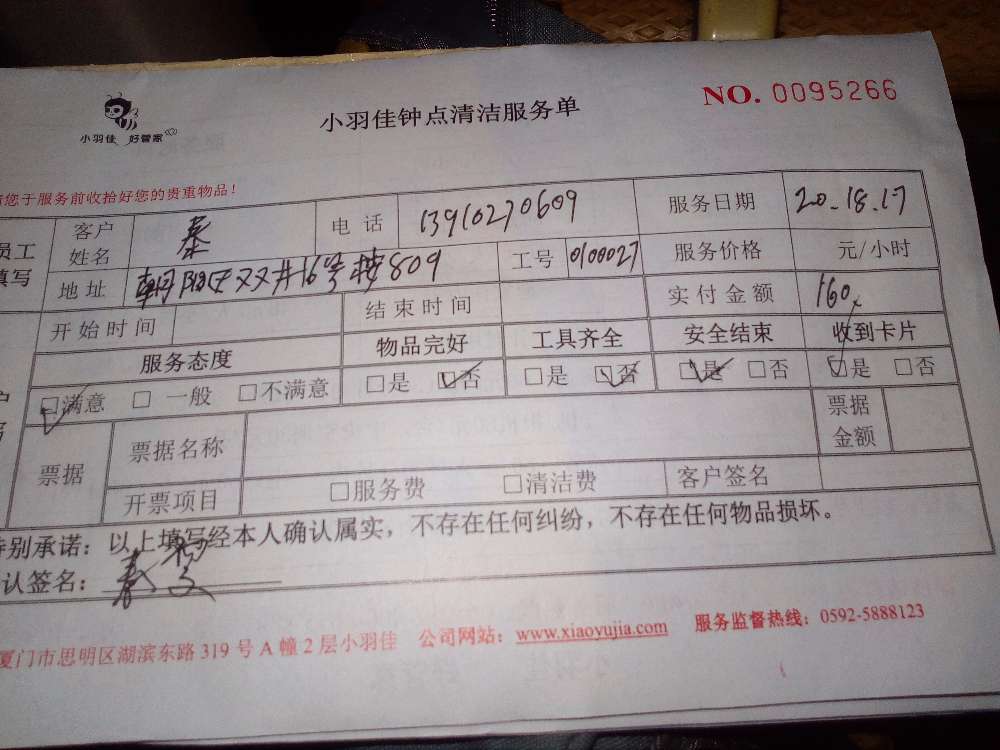 小羽佳 好管家
小羽佳钟点清洁服务单
NO. 0095266
您于服务前收拾好您的贵重物品!
员工
填写
客户
姓名
秦
电话
13910270609
服务日期
20.18.17
地址
16号楼809
工号
0100027
服务价格
元/小时
开始时间
结束时间
实付金额
160
服务态度
物品完好
工具齐全
安全结束
收到卡片
□满意 □一般 □不满意
□是 □否
□是 □否
□是 □否
□是 □否
票据
票据名称
票据
金额
开票项目
□服务费 □清洁费
客户签名
特别承诺:以上填写经本人确认属实,不存在任何纠纷,不存在任何物品损坏。
认签名:
厦门市思明区湖滨东路319号A幢2层小羽佳 公司网站:www.xiaoyujia.com 服务监督热线:0592-5888123